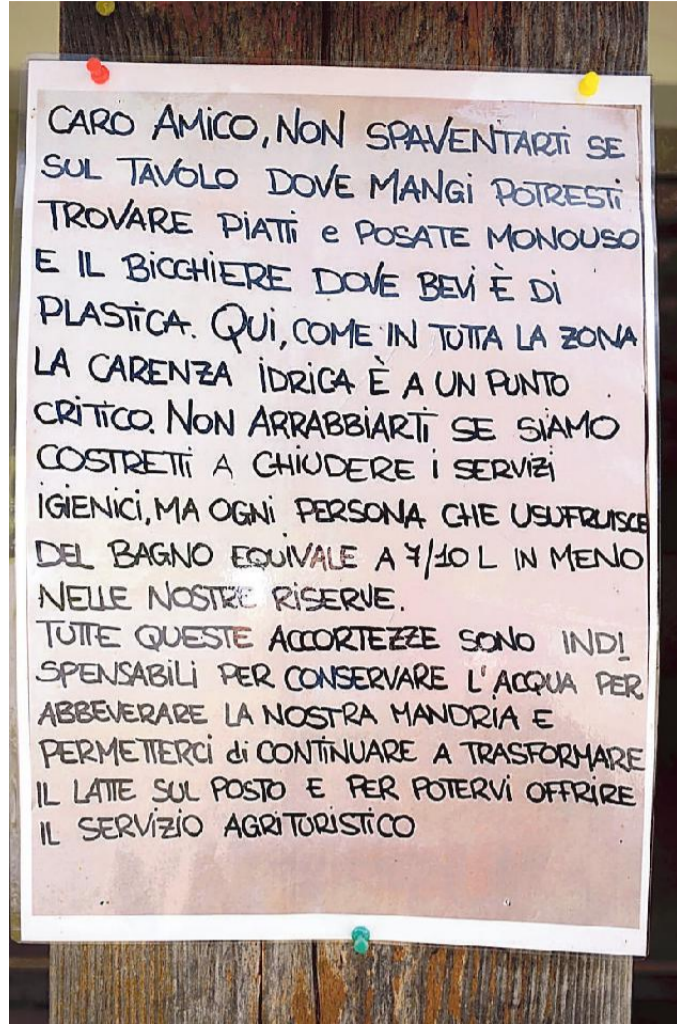 CARO AMICO, NON SPAVENTARTI SE
SUL TAVOLO DOVE MANGI POTRESTI
TROVARE PIATTI e POSATE MONOUSO
E IL BICCHIERE DOVE BEVI È DI
PLASTICA. QUI, COME IN TUTTA LA ZONA
LA CARENZA IDRICA È A UN PUNTO
CRITICO. NON ARRABBIARTI SE SIAMO
COSTRETTI A CHIUDERE I SERVIZI
IGIENICI, MA OGNI PERSONA CHE USUFRUISCE
DEL BAGNO EQUIVALE A 7/10 L IN MENO
NELLE NOSTRE RISERVE.
TUTTE QUESTE ACCORTEZZE SONO INDI_
SPENSABILI PER CONSERVARE L'ACQUA PER
ABBEVERARE LA NOSTRA MANDRIA E
PERMETTERCI di CONTINUARE A TRASFORMARE
IL LATTE SUL POSTO E PER POTERVI OFFRIRE
IL SERVIZIO AGRITURISTICO